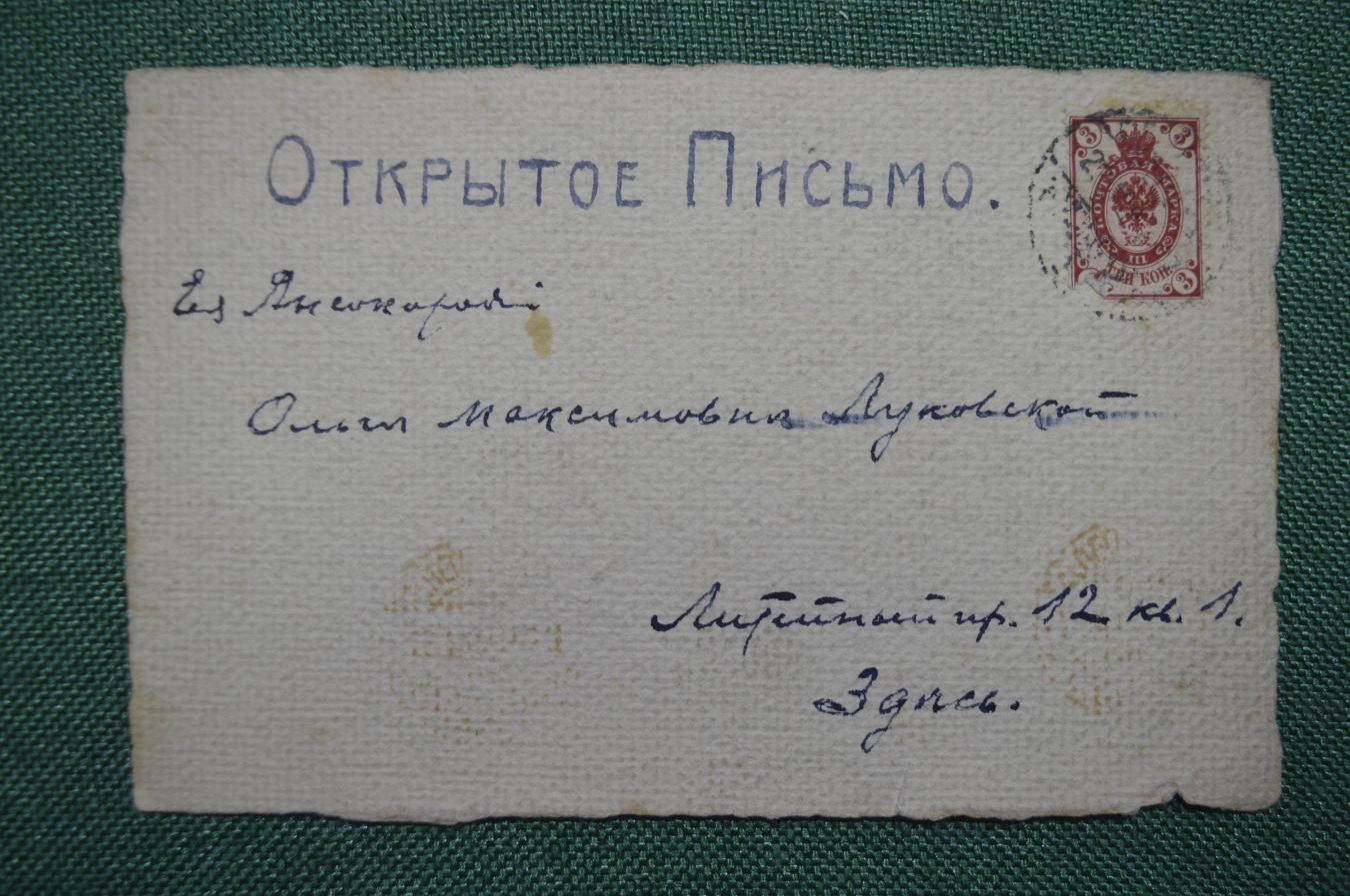 Открытое Письмо.
3 3
ПОЧТОВАЯ МАРКА
III
ТРИ КОП.
3
Ея
Ольгѣ Максимовнѣ Луковской
Литейный пр. 12 кв. 1.
Здѣсь.